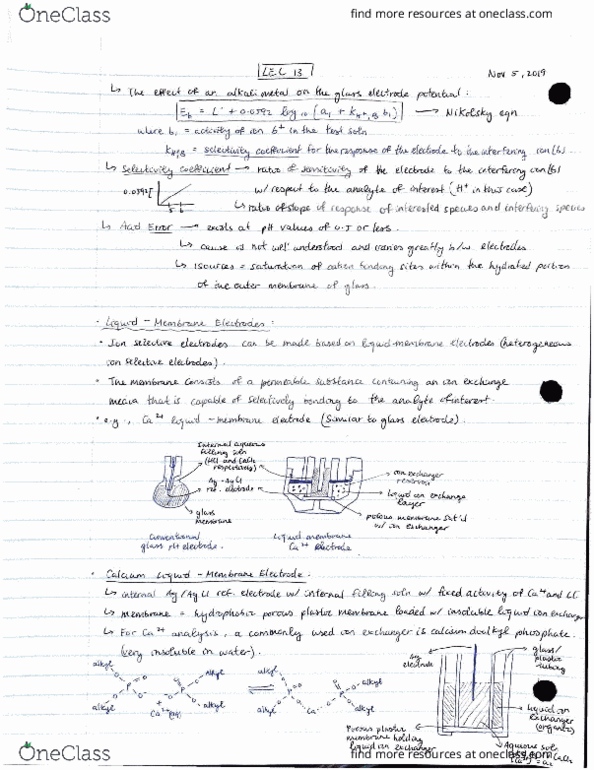 OneClass
find more resources at oneclass.com
LEC 13
Nov 5, 2019
↳ The effect of an alkali metal on the glass electrode potential:
E_b = L' + 0.0592 log₁₀ (a₁ + k_H⁺,B b₁) → Nikolsky eqn
where b₁ = activity of ion B⁺ in the test soln
= selectivity coefficient for the response of the electrode to the interfering ion(s)
↳ Selectivity coefficient → ratio of sensitivity of the electrode to the interfering ion(s)
0.0592[
w/ respect to the analyte of interest (H⁺ in this case)
↳ ratio of slope of response of interested species and interfering species
↳ Acid Error → exists at pH values of 0.5 or less.
↳ cause is not well understood and varies greatly b/w electrodes
↳ 1 source = saturation of cation binding sites within the hydrated portion
of the outer membrane of glass.
· Liquid-Membrane Electrodes:
• Ion selective electrodes can be made based on liquid-membrane electrodes (heterogeneous
ion selective electrodes).
• The membrane consists of a permeable substance containing an ion exchange
media that is capable of selectively bonding to the analyte of interest.
• e.g., Ca²⁺ liquid-membrane electrode (similar to glass electrode).
Internal aqueous
filling soln
(HCl and CaCl₂
respectively)
Ag-AgCl
ref. electrode
glass
membrane
ion exchanger
reservoir
liquid ion exchange
layer
porous membrane sat'd
w/ ion exchanger
Conventional
glass pH electrode.
Liquid membrane
Ca²⁺ electrode
• Calcium Liquid-Membrane Electrode:
↳ internal Ag/AgCl ref. electrode w/ internal filling soln w/ fixed activity of Ca²⁺ and Cl⁻
↳ membrane = hydrophobic porous plastic membrane loaded w/ insoluble liquid ion exchanger
↳ For Ca²⁺ analysis, a commonly used ion exchanger is calcium dialkyl phosphate.
(very insoluble in water).
alkyl
alkyl
alkyl
alkyl
+
Ca²⁺(aq)
⇌
alkyl
alkyl
alkyl
alkyl
Ca
Ag
electrode
glass/
plastic
tubing
liquid ion
exchanger
(organic)
Porous plastic
membrane holding
liquid ion exchanger
Aqueous soln
OneClass
find more resources at oneclass.com